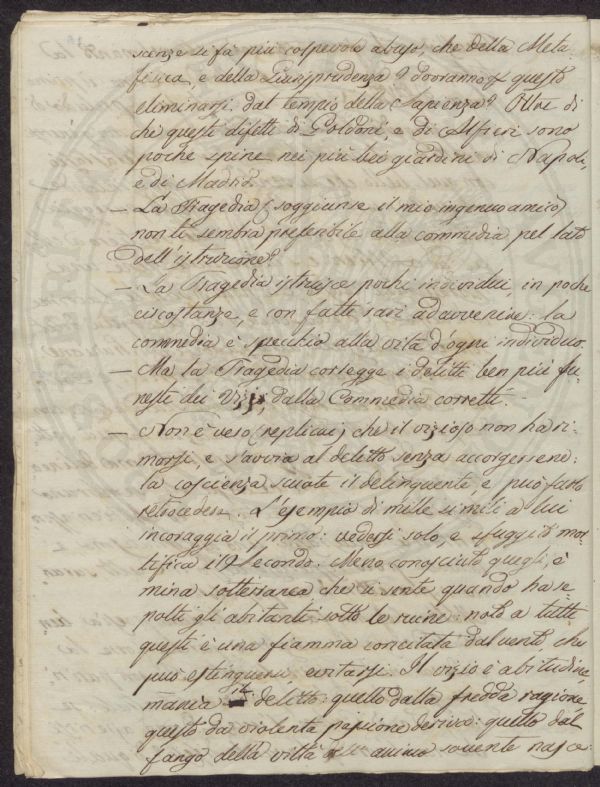 scenze si fà più colpevole abuso, che della Meta
fisica, e della Giurisprudenza? dovranno queste
eliminarsi dal tempio della Sapienza? Oltre di
che questi difetti di Goldoni, e di Alfieri sono
poche spine nei più bei giardini di Napoli,
e di Madrid.
— La Tragedia (soggiunse il mio ingenuo amico)
non ti sembra preferibile alla commedia pel lato
dell'istruzione?
— La Tragedia istruisce pochi individui, in poche
circostanze, e con fatti rari ad avvenire: la
commedia è specchio alla vita d'ogni individuo.
— Ma la Tragedia corregge i delitti ben più fu-
nesti dei vizj, dalla Commedia corretti. -
— Non è vero (replicai) che il vizioso non ha ri-
morsi, e s'avvia al delitto senza accorgersene:
la coscienza scuote il delinquente, e può farlo
retrocedere. L'esempio di mille simili a lui
incoraggia il primo: vedersi solo, e sfuggito mor-
tifica il secondo. Meno conosciuto quegli, è
mina sotterranea che si sente quando ha se-
polti gli abitanti sotto le ruine: noto a tutti
questi è una fiamma concitata dal vento, che
può estinguersi, evitarsi. Il vizio è abitudine,
mania il delitto: quello dalla fredda ragione
questo da violenta passione deriva: quello dal
fango della viltà animo sovente nasce: